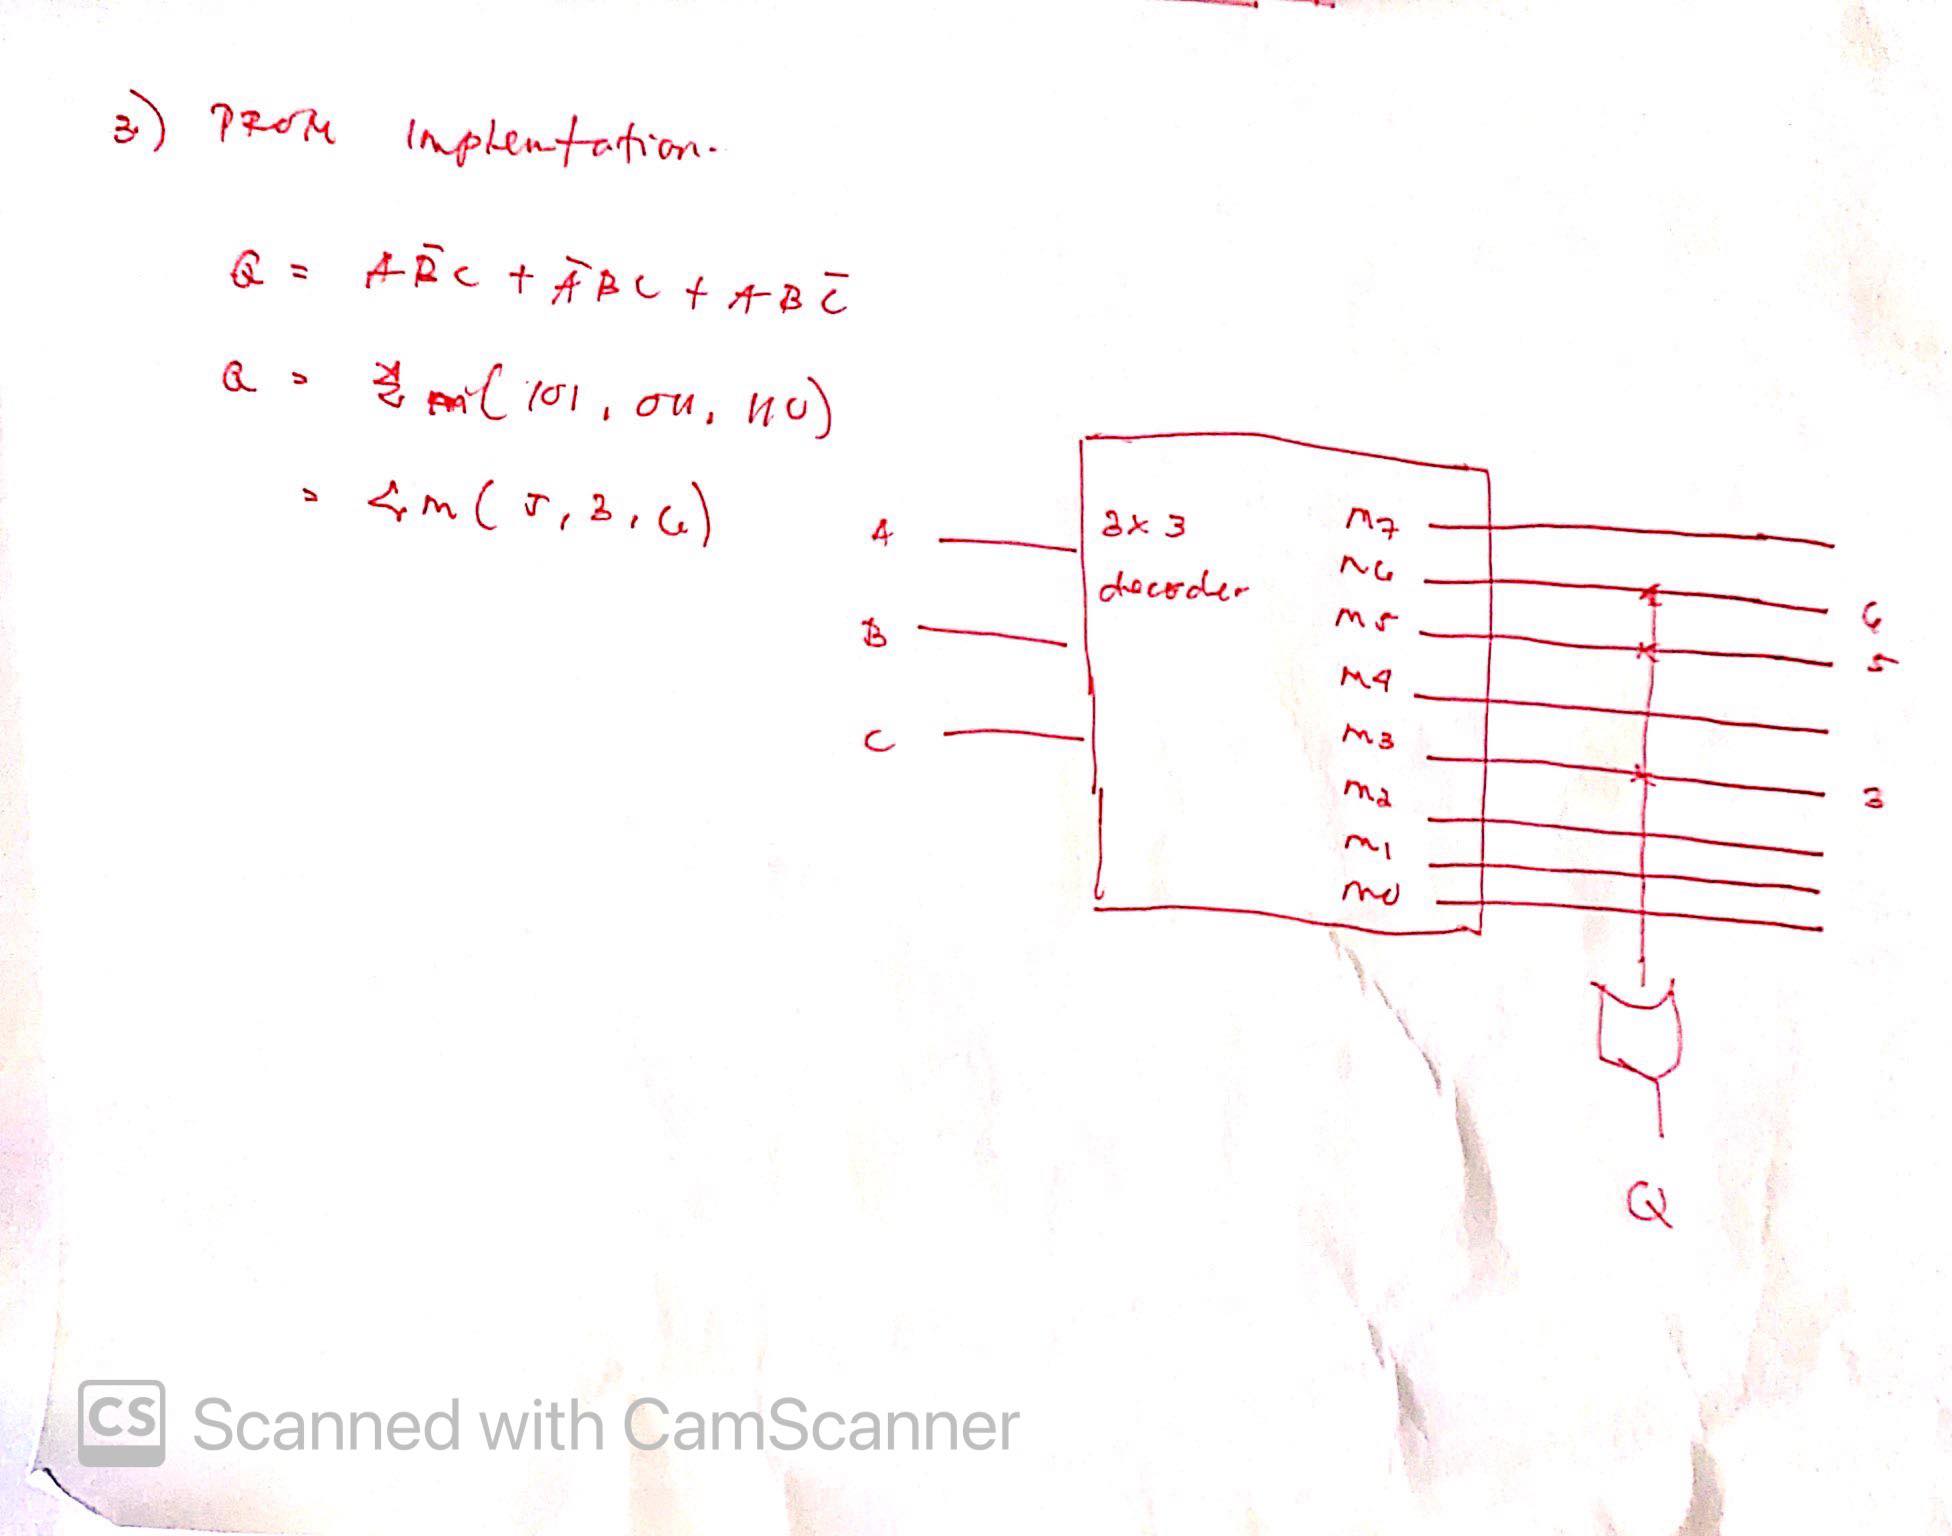 3) PROM Implentation.
Q = AB̄C + ĀBC + ABC̄
Q = Σm(101, 011, 110)
= Σm(5, 3, 6)
A
B
C
3x3
decoder
m7
m6
m5
m4
m3
m2
m1
m0
6
5
3
Q
CS Scanned with CamScanner